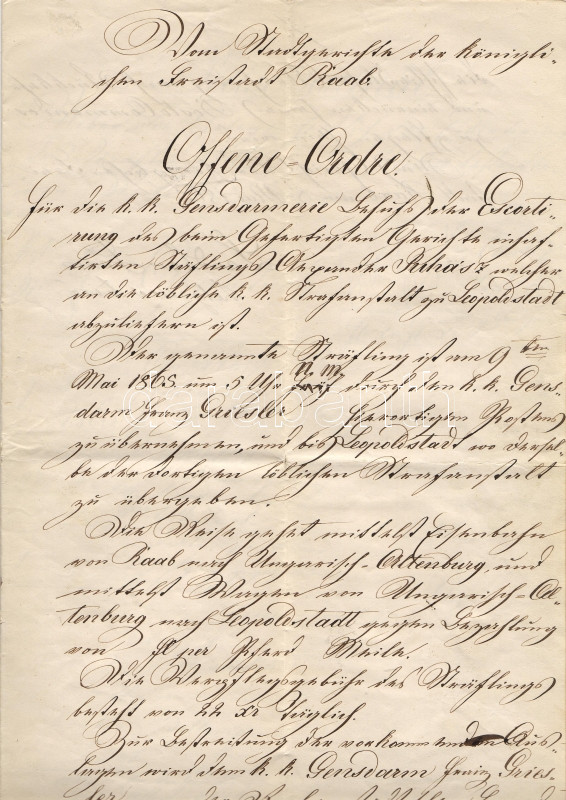 Vom Stadtgerichte der königli-
chen Freistadt Raab.
Offene-Ordre.
Für die k. k. Gensdarmerie Behufs der Escorti-
rung des beim Gefertigten Gerichte inhaf-
tirten Häftlings Alexander Juhász welcher
an die löbliche k. k. Strafanstalt zu Leopoldstadt
abzuliefern ist.
Der genannte Sträfling ist am 9ten
Mai 1865 um 5 Uhr N. M. durch den k. k. Gens-
darm Franz Griesler hierortigen Postens
zu übernehmen, und bis Leopoldstadt wo dersel-
be der dortigen löblichen Strafanstalt
zu übergeben.
Die Reise gehet mittelst Eisenbahn
von Raab nach Ungarisch-Altenburg, und
mittelst Wagen von Ungarisch-Al-
tenburg nach Leopoldstadt gegen Bezahlung
von fl per Pferd Meile.
Die Verpflegsgebühr des Sträflings
besteht von 22 xr täglich.
Zur Bestreitung der vorkommenden Aus-
lagen wird dem k. k. Gensdarm Franz Gries-
ler
darabanth